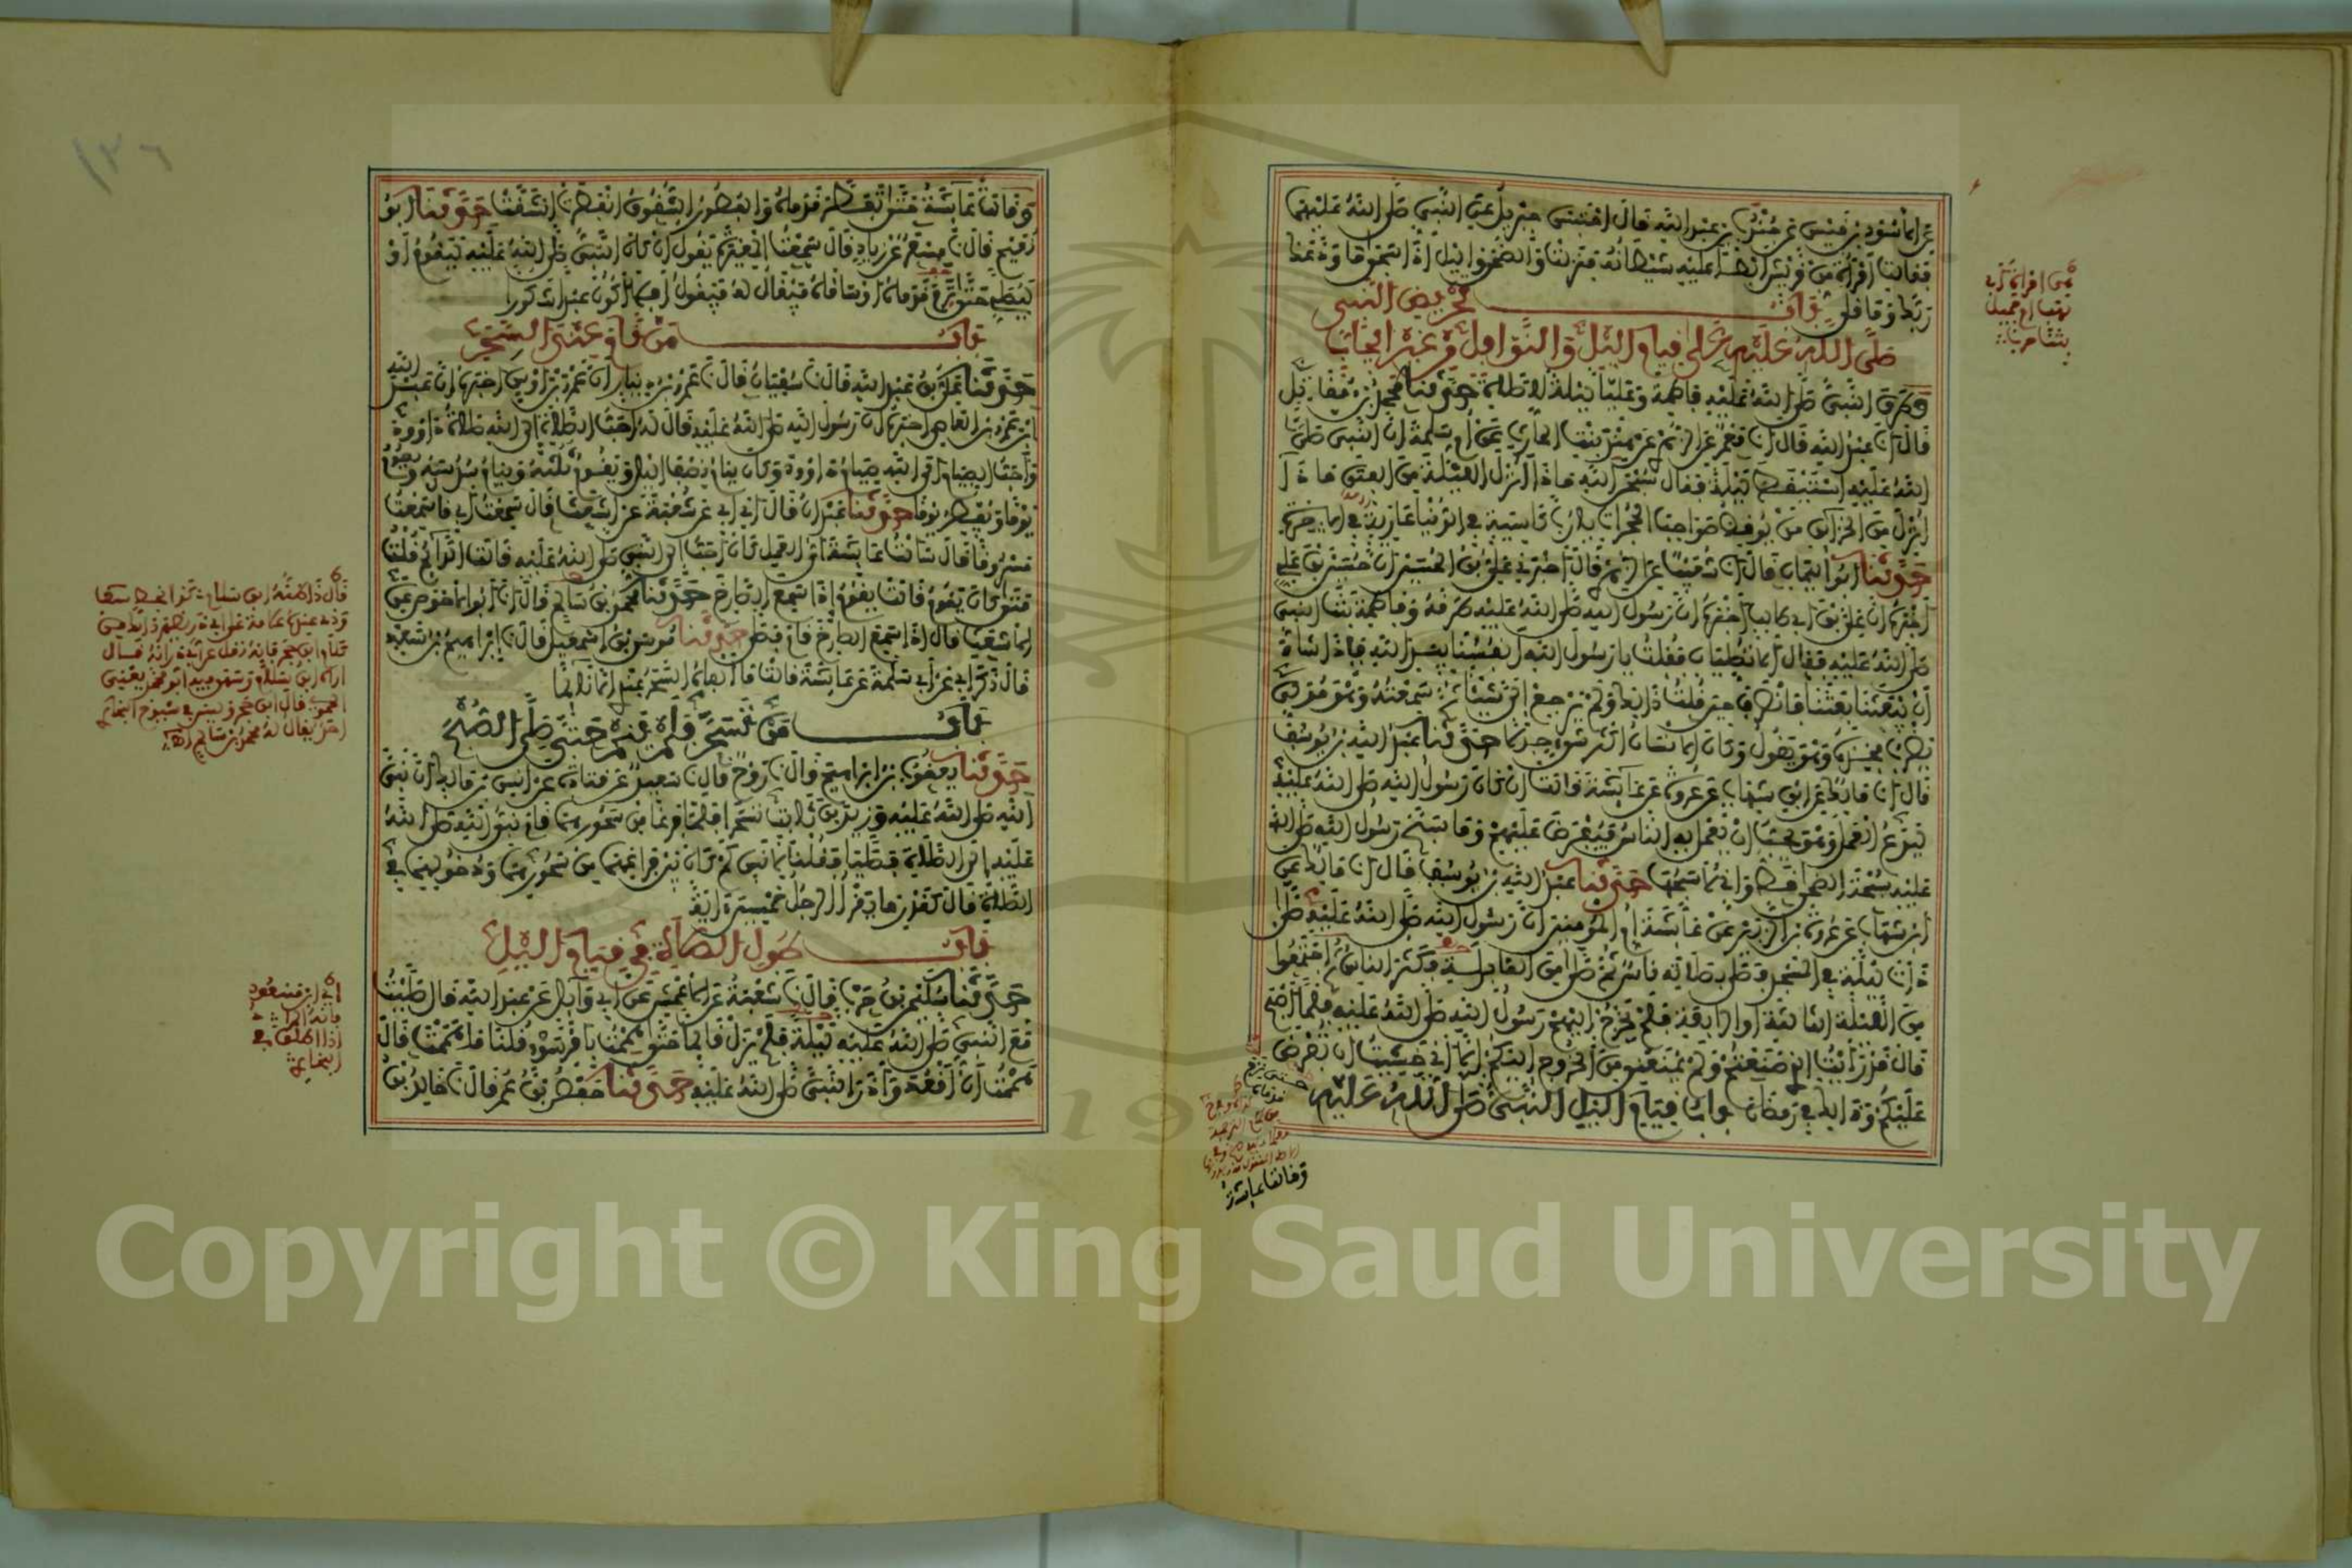 عن الأسود بن قيس عن جندب بن عبد الله قال احتبس جبريل عن النبي صلى الله عليهما
فقالت امرأة من قريش أبطأ عليه شيطانه فنزلت والضحى واليل إذا سجى ما ودعك
ربك وما قلى باب تحريض النبي
صلى الله عليه على قيام اليل والنوافل من غير إيجاب
وطرق النبي صلى الله عليه فاطمة وعليا ليلة للصلاة حدثنا محمد بن مقاتل
قال أنا عبد الله قال أنا معمر عن الزهري عن هند بنت الحارث عن أم سلمة أن النبي صلى
الله عليه استيقظ ليلة فقال سبحن الله ماذا أنزل الليلة من الفتن ماذا
أنزل من الخزائن من يوقظ صواحب الحجرات يا رب كاسية في الدنيا عارية في الآخرة
حدثنا أبو اليمان قال أنا شعيب عن الزهري قال أخبرني علي بن الحسين أن حسين بن علي
أخبره أن علي بن أبي طالب أخبره أن رسول الله صلى الله عليه طرقه وفاطمة بنت النبي
صلى الله عليه فقال ألا تصليان فقلت يا رسول الله أنفسنا بيد الله فإذا شاء
أن يبعثنا بعثنا فانصرف حين قلت ذلك ولم يرجع إلي شيئا ثم سمعته وهو مول
يضرب فخذه وهو يقول وكان الإنسان أكثر شيء جدلا حدثنا عبد الله بن يوسف
قال أنا مالك عن ابن شهاب عن عروة عن عائشة قالت إن كان رسول الله صلى الله عليه
ليدع العمل وهو يحب أن يعمل به الناس فيفرض عليهم وما سبح رسول الله صلى الله
عليه سبحة الضحى قط وإني لأسبحها حدثنا عبد الله بن يوسف قال أنا مالك عن
ابن شهاب عن عروة بن الزبير عن عائشة أم المؤمنين أن رسول الله صلى الله عليه صلى
ذات ليلة في المسجد فصلى بصلاته ناس ثم صلى من القابلة فكثر الناس ثم اجتمعوا
من الليلة الثالثة أو الرابعة فلم يخرج إليهم رسول الله صلى الله عليه فلما أصبح
قال قد رأيت الذي صنعتم ولم يمنعني من الخروج إليكم إلا أني خشيت أن تفرض
عليكم وذلك في رمضان باب قيام اليل النبي صلى الله عليه
وقالت عائشة
وقالت عائشة حتى تفطر قدماه والفطور الشقوق انفطرت انشقت حدثنا أبو
نعيم قال نا مسعر عن زياد قال سمعت المغيرة يقول إن كان النبي صلى الله عليه ليقوم أو
ليصلي حتى ترم قدماه أو ساقاه فيقال له فيقول أفلا أكون عبدا شكورا
باب من نام عند السحر
حدثنا علي بن عبد الله قال نا سفيان قال نا عمرو بن دينار أن عمرو بن أوس أخبره أن عبد الله
بن عمرو بن العاصي أخبره أن رسول الله صلى الله عليه قال له أحب الصلاة إلى الله صلاة داوود
وأحب الصيام إلى الله صيام داوود وكان ينام نصف اليل ويقوم ثلثه وينام سدسه ويصوم
يوما ويفطر يوما حدثنا عبدان قال أني أبي عن شعبة عن أشعث قال سمعت أبي قال سمعت
مسروقا قال سألت عائشة أي العمل كان أحب إلى النبي صلى الله عليه قالت الدائم قلت
متى كان يقوم قالت يقوم إذا سمع الصارخ حدثنا محمد بن سالم قال أنا أبو الأحوص عن
الأشعث قال إذا سمع الصارخ قام فصلى حدثنا موسى بن إسمعيل قال نا إبراهيم بن سعد
قال ذكر أبي عن أبي سلمة عن عائشة قالت ما ألفاه السحر عندي إلا نائما
باب من تسحر فلم ينم حتى صلى الصبح
حدثنا يعقوب بن إبراهيم قال نا روح قال نا سعيد عن قتادة عن أنس بن مالك أن نبي
الله صلى الله عليه وزيد بن ثابت تسحرا فلما فرغا من سحورهما قام نبي الله صلى الله
عليه إلى الصلاة فصلى قلنا لأنس كم كان بين فراغهما من سحورهما ودخولهما في
الصلاة قال كقدر ما يقرأ الرجل خمسين آية
باب طول الصلاة في قيام اليل
حدثنا سليمن بن حرب قال نا شعبة عن الأعمش عن أبي وائل عن عبد الله قال صليت
مع النبي صلى الله عليه ليلة فلم يزل قائما حتى هممت بأمر سوء قلنا ما هممت قال
هممت أن أقعد وأذر النبي صلى الله عليه حدثنا حفص بن عمر قال نا خالد بن
١٣٦
Copyright © King Saud University
19